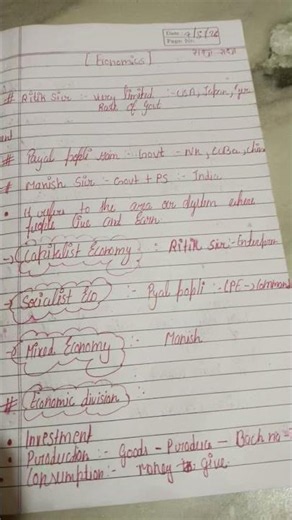 Date 9/5/26
Page No.
[Economics]
# Ritik Sir :- very limited :- USA, Japan,
Role of Govt
# Payal popli mam :- Govt - NK, Cuba, China
# Manish Sir - Govt + PS :- India
• it refers to the area or system where
people live and Earn
→ Capitalist Economy : Ritik Sir :-
→ Socialist Eco :- Pyal popli :- CPE → Command
→ Mixed Economy : Manish
# Economic division
• Investment
• Puroduction :- Goods - Puroduce -
• Consumption :- money to give